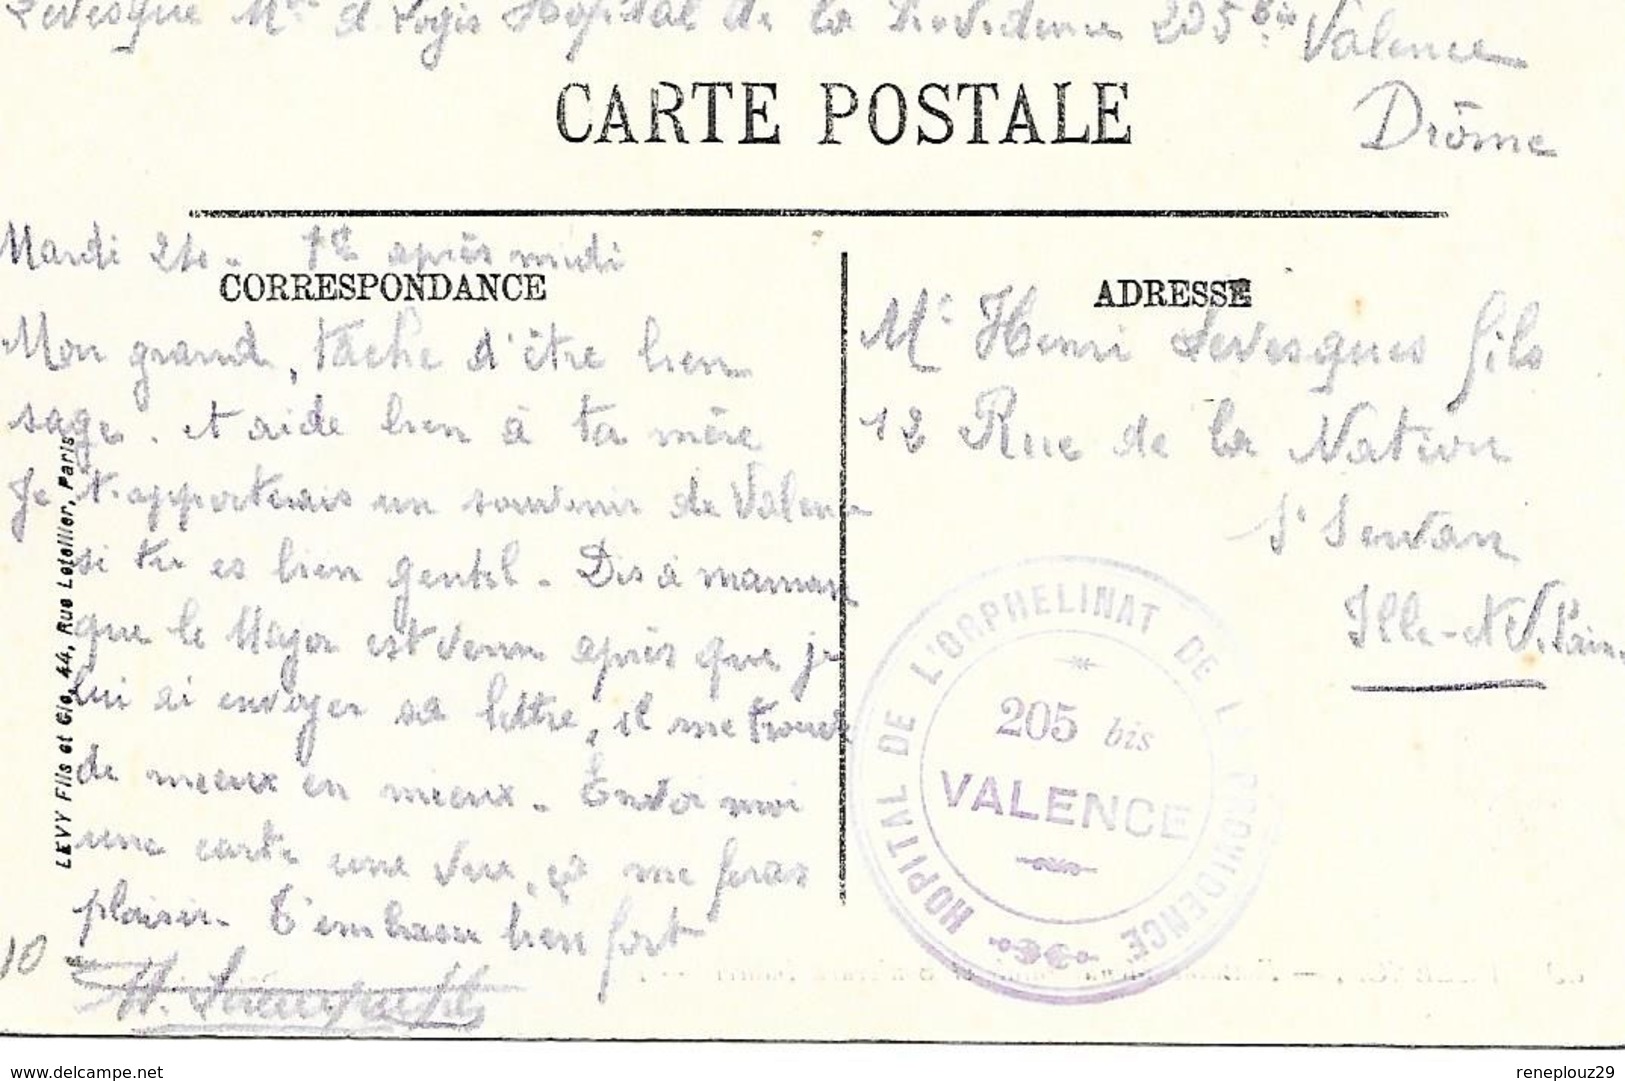 Levesque Mal d Logis Hopital de la Providence 205 bis Valence
Drôme
CARTE POSTALE
Mardi 24 - 1h après midi
CORRESPONDANCE
Mon grand, tache d'être bien
sage. et aide bien à ta mère
Je t'apporterais un souvenir de Valence
si tu es bien gentil - Dis à maman
que le Major est venu après que je
lui ai envoyer sa lettre, il me trouve
de mieux en mieux. Envoi moi
une carte une vue, ça me feras
plaisir. T'embrasse bien fort
10
ADRESSE
Mr Henri Levesques fils
12 Rue de la Nation
St Servan
Ille-et-V.laine
HOPITAL DE L'ORPHELINAT DE LA PROVIDENCE
205 bis
VALENCE
LEVY Fils et Cie, 44, Rue Letellier, Paris
www.delcampe.net
reneplouz29